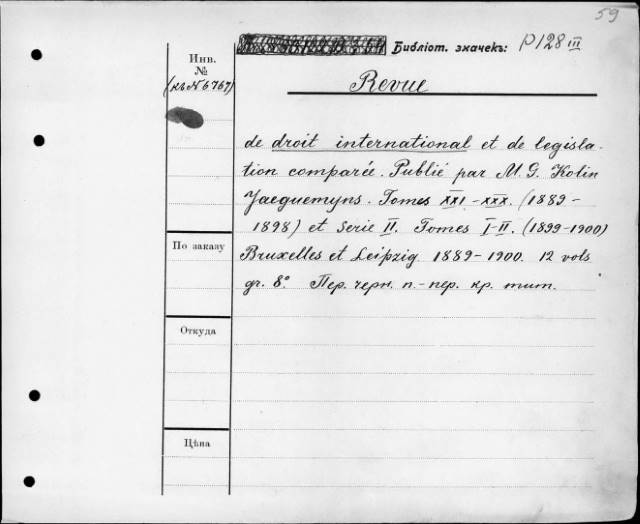 59
Библіот. значекъ: P128 III
Инв.
№
(къ № 6767)
Revue
de droit international et de legisla-
tion comparée. Publié par M. G. Kolin
Jaequemyns. Tomes XXI-XXX. (1889-
1898) et Serie II. Tomes I-II. (1899-1900)
Bruxelles et Leipzig 1889-1900. 12 vols
gr. 8° Пер. черн. п.-пер. кр. тит.
По заказу
Откуда
Цѣна